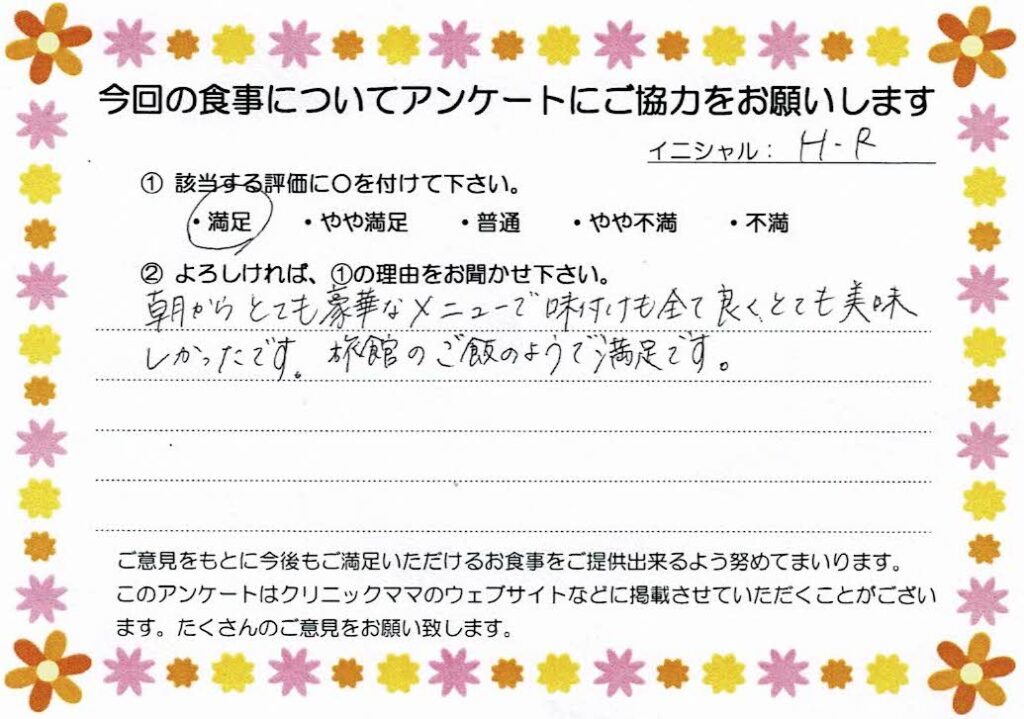 今回の食事についてアンケートにご協力をお願いします
イニシャル： H-R
① 該当する評価に○を付けて下さい。
・満足 ・やや満足 ・普通 ・やや不満 ・不満
② よろしければ、①の理由をお聞かせ下さい。
朝からとても豪華なメニューで味付けも全て良くとても美味
しかったです。旅館のご飯のようで満足です。
ご意見をもとに今後もご満足いただけるお食事をご提供出来るよう努めてまいります。
このアンケートはクリニックママのウェブサイトなどに掲載させていただくことがござい
ます。たくさんのご意見をお願い致します。